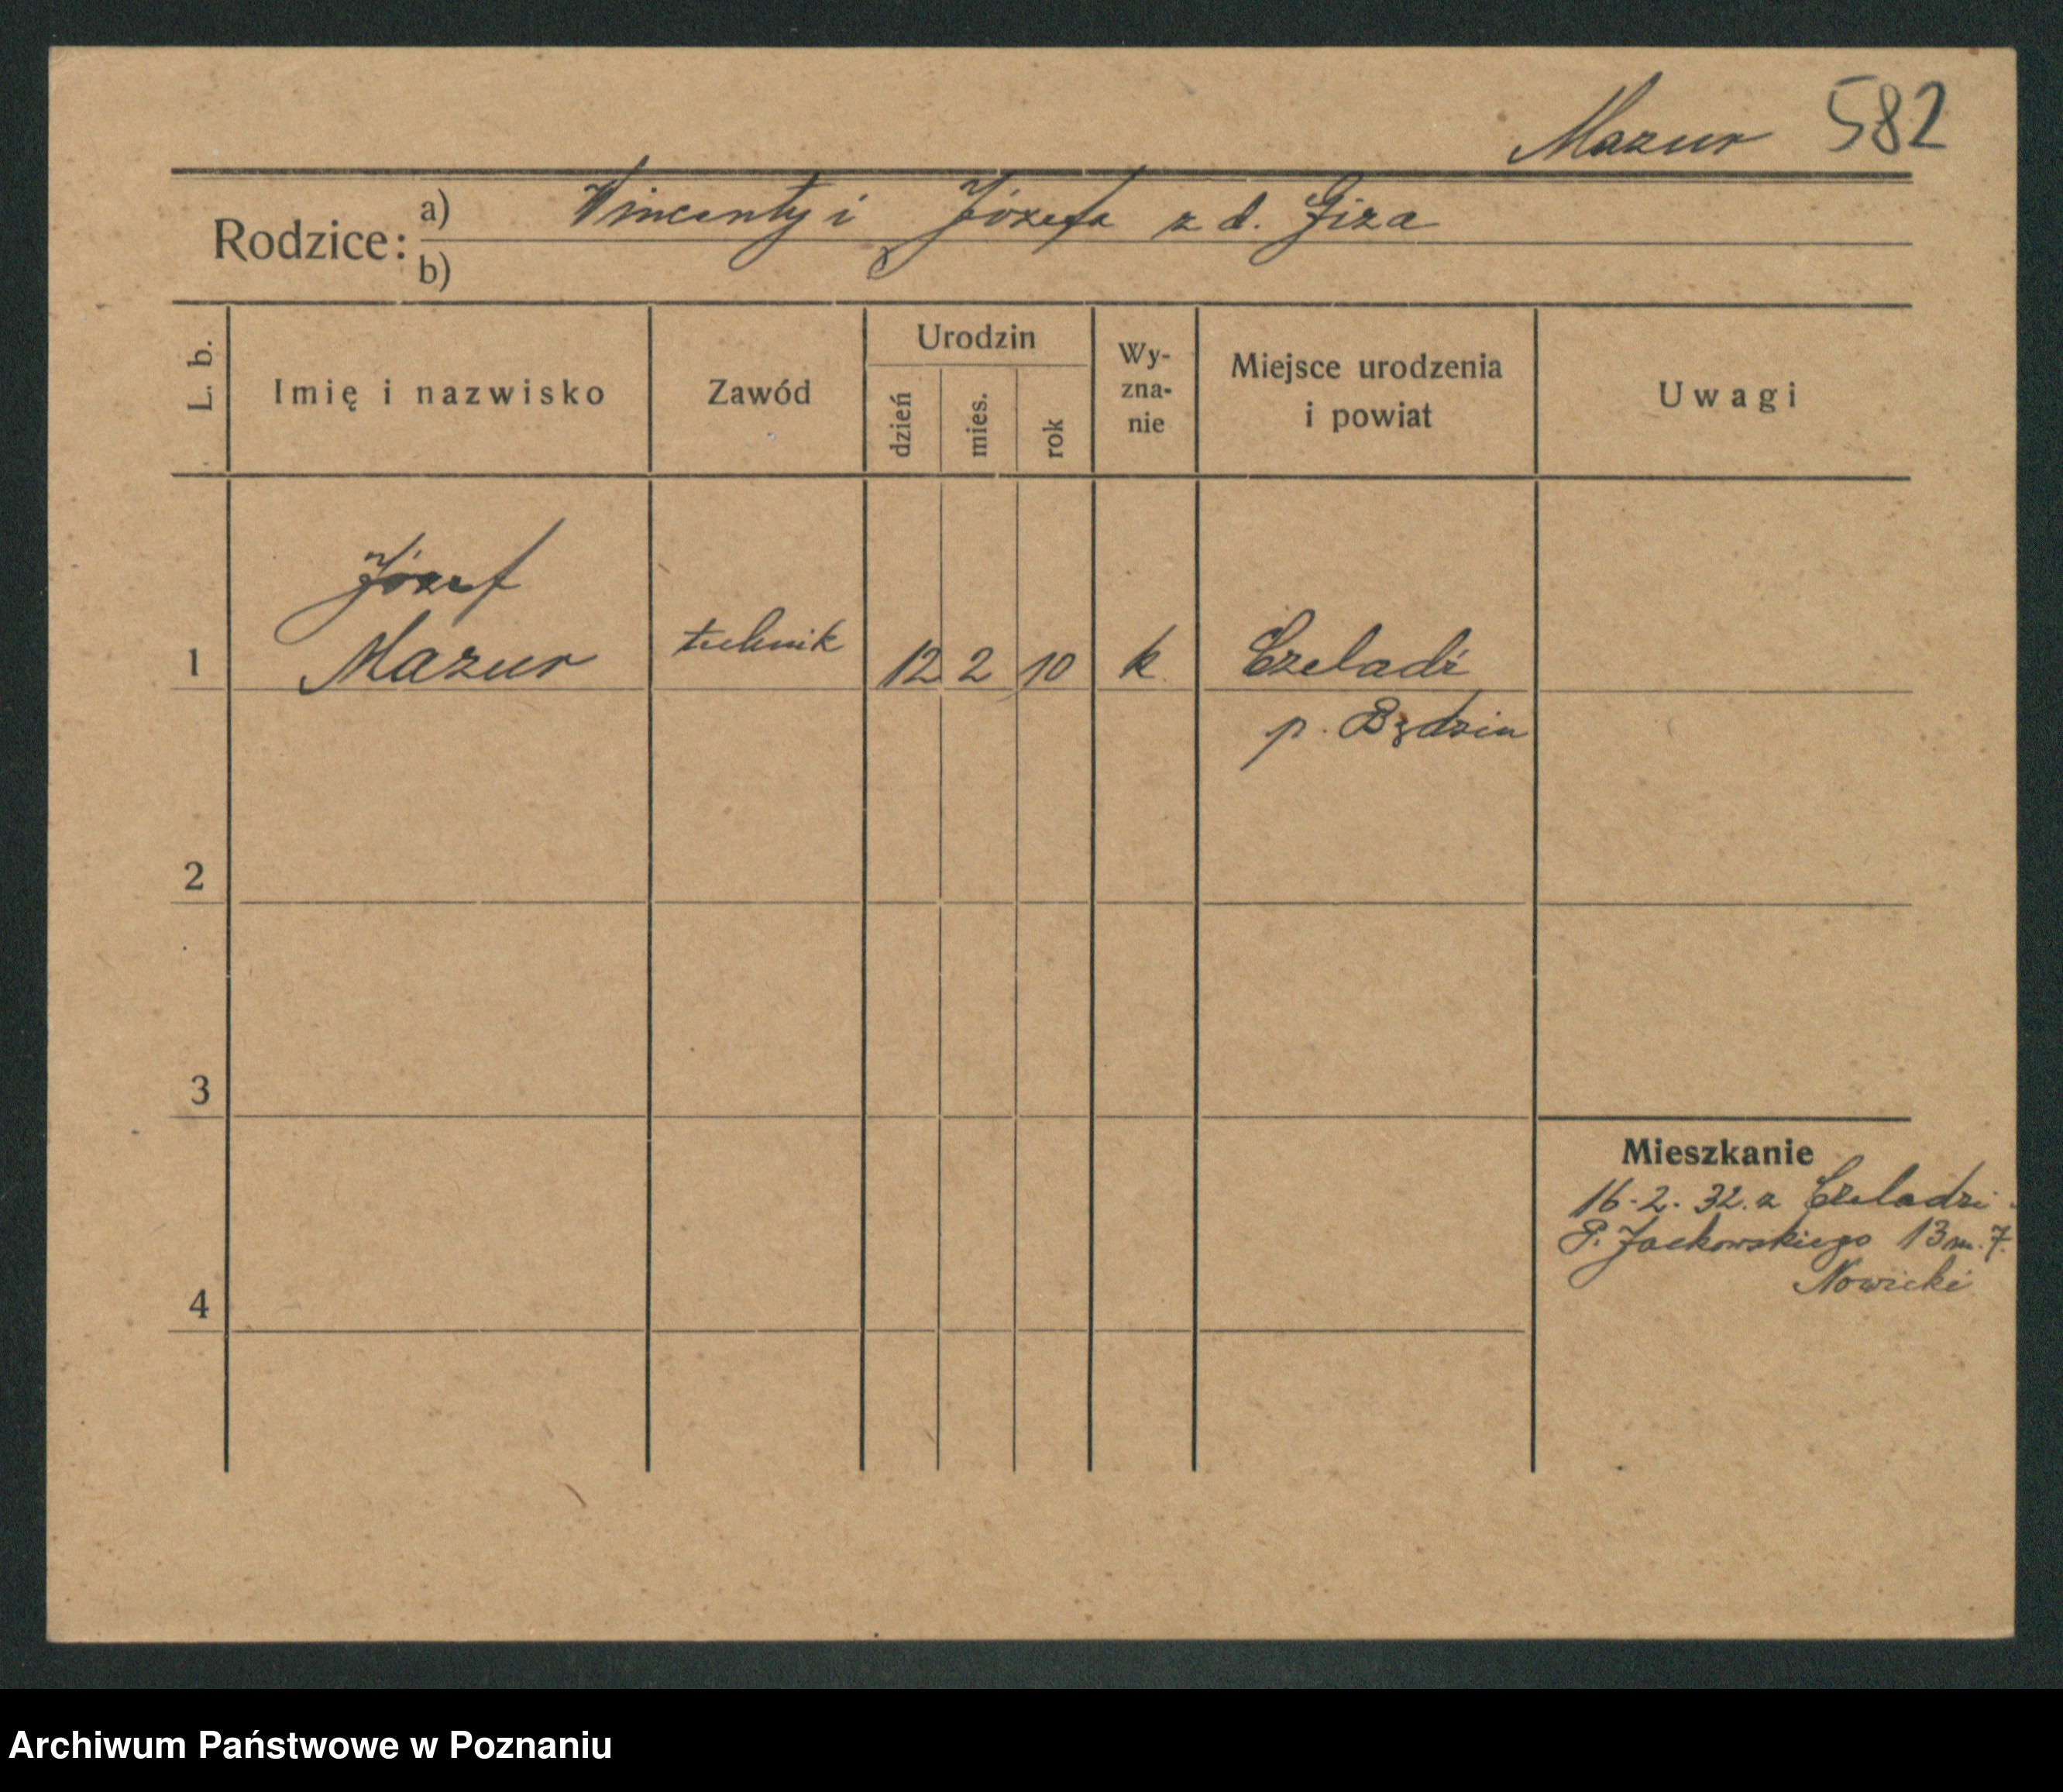 Mazur 582
Rodzice: a) Wincenty i Józefa z d. Giza
b)
L. b.
Imię i nazwisko
Zawód
Urodzin
dzień
mies.
rok
Wy-
zna-
nie
Miejsce urodzenia
i powiat
Uwagi
Józef
1 Mazur technik 12 2 10 k Czeladź
p. Będzin
2
3
Mieszkanie
16-2-32. z Czeladzi
P. Jackowskiego 13 m. 7.
Nowicki
4
Archiwum Państwowe w Poznaniu